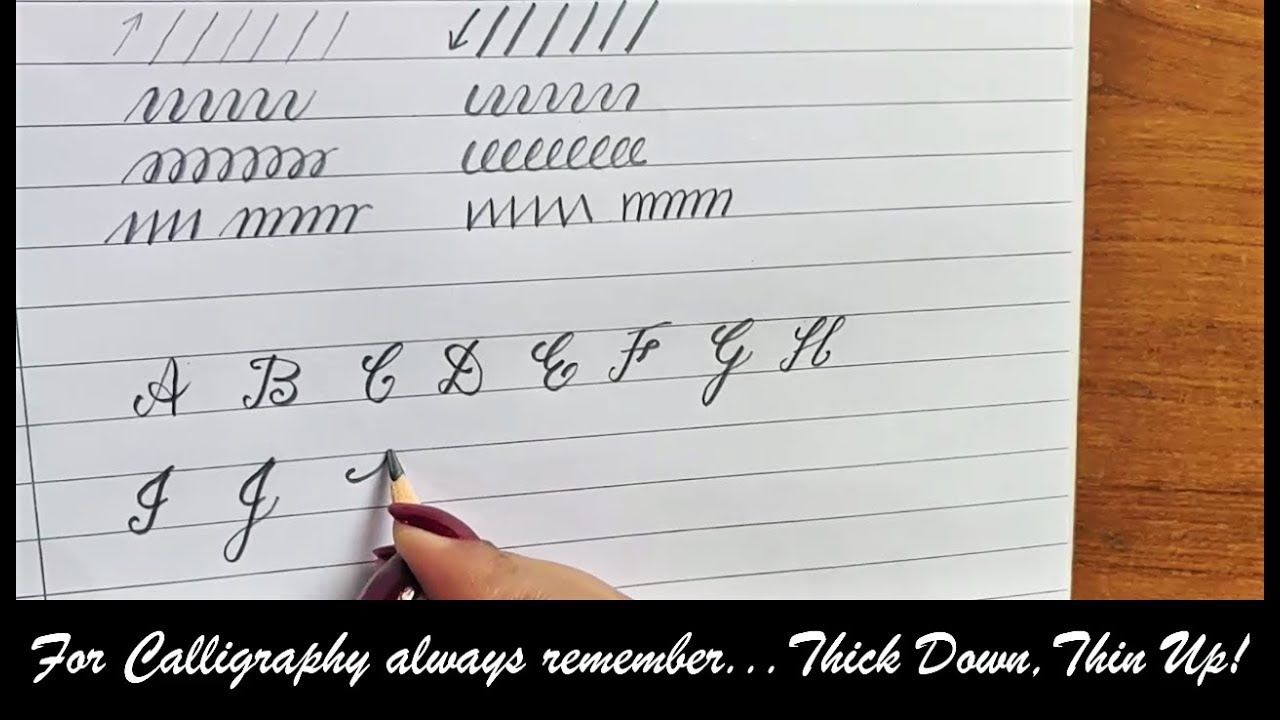 A B C D E F G H
I J
For Calligraphy always remember... Thick Down, Thin Up!